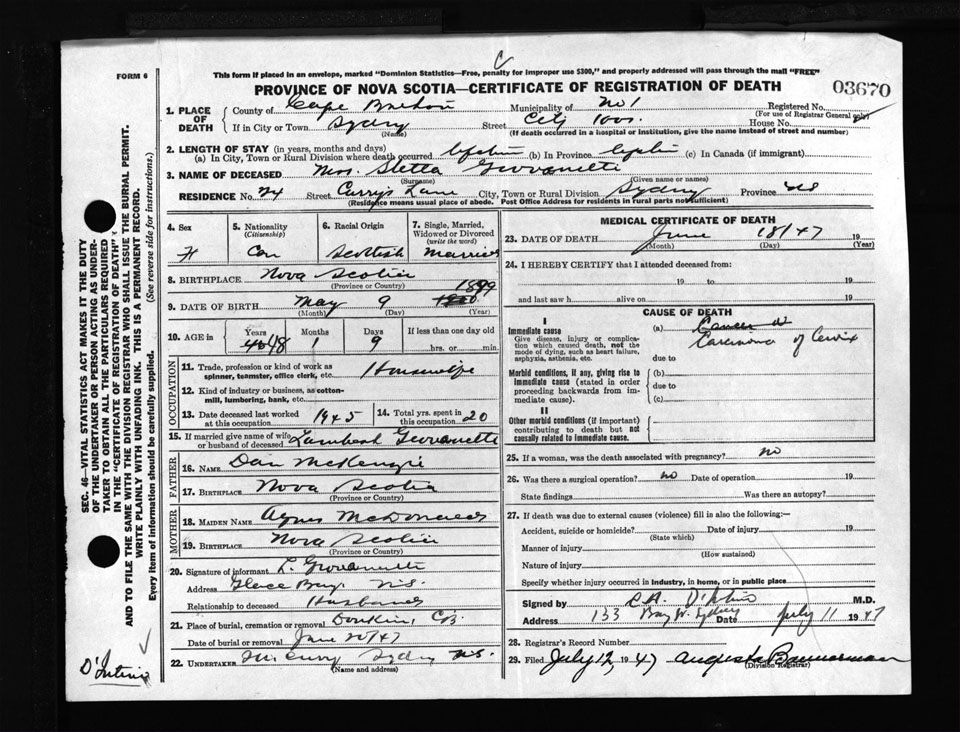 FORM 6
This form if placed in an envelope, marked "Dominion Statistics—Free, penalty for improper use $300," and properly addressed will pass through the mail "FREE"
C
PROVINCE OF NOVA SCOTIA—CERTIFICATE OF REGISTRATION OF DEATH
03670
1. PLACE OF DEATH
County of Cape Breton Municipality of No 1 Registered No.
(For use of Registrar General only)
If in City or Town Sydney Street City House No.
(Name) (If death occurred in a hospital or institution, give the name instead of street and number)
2. LENGTH OF STAY (in years, months and days)
(a) In City, Town or Rural Division where death occurred lifetime (b) In Province lifetime (c) In Canada (if immigrant)
3. NAME OF DECEASED Mrs. Stella Giovanetti
(Surname) (Given name or names)
RESIDENCE No. 24 Street Currys Lane City, Town or Rural Division Sydney Province NS
(Residence means usual place of abode. Post Office Address for residents in rural parts not sufficient)
4. Sex
F
5. Nationality (Citizenship)
Can
6. Racial Origin
Scottish
7. Single, Married, Widowed or Divorced (write the word)
Married
8. BIRTHPLACE Nova Scotia
(Province or Country)
9. DATE OF BIRTH May 9 1899
(Month) (Day) (Year)
10. AGE in
Years Months Days If less than one day old
48 1 9 hrs. or min.
OCCUPATION
11. Trade, profession or kind of work as spinner, teamster, office clerk, etc. Housewife
12. Kind of industry or business, as cotton-mill, lumbering, bank, etc.
13. Date deceased last worked at this occupation 1945
14. Total yrs. spent in this occupation 20
15. If married give name of wife or husband of deceased Giovanetti
FATHER
16. NAME Dan McKenzie
17. BIRTHPLACE Nova Scotia
(Province or Country)
MOTHER
18. MAIDEN NAME Agnes McDonald
19. BIRTHPLACE Nova Scotia
(Province or Country)
20. Signature of informant L. Giovanetti
Address Glace Bay N.S.
Relationship to deceased Husband
21. Place of burial, cremation or removal Donkin, C.B.
Date of burial or removal June 20/47
22. UNDERTAKER Sydney N.S.
(Name and address)
MEDICAL CERTIFICATE OF DEATH
23. DATE OF DEATH June 18/47 19
(Month) (Day) (Year)
24. I HEREBY CERTIFY that I attended deceased from:
19 to 19
and last saw h alive on 19
CAUSE OF DEATH
I
Immediate cause
Give disease, injury or complication which caused death, not the mode of dying, such as heart failure, asphyxia, asthenia, etc.
(a) Cancer
Carcinoma of Cervix
due to
Morbid conditions, if any, giving rise to immediate cause (stated in order proceeding backwards from immediate cause)
(b)
due to
(c)
II
Other morbid conditions (if important) contributing to death but not causally related to immediate cause.
25. If a woman, was the death associated with pregnancy? no
26. Was there a surgical operation? no Date of operation 19
State findings Was there an autopsy?
27. If death was due to external causes (violence) fill in also the following:—
Accident, suicide or homicide? Date of injury 19
(State which)
Manner of injury
(How sustained)
Nature of injury
Specify whether injury occurred in industry, in home, or in public place
Signed by M.D.
Address 133 Sydney Date July 11 1947
28. Registrar's Record Number
29. Filed July 12, 1947 Augusta Bannerman
(Division Registrar)
SEC. 46—VITAL STATISTICS ACT MAKES IT THE DUTY
OF THE UNDERTAKER OR PERSON ACTING AS UNDER-
TAKER TO OBTAIN ALL THE PARTICULARS REQUIRED
IN THE "CERTIFICATE OF REGISTRATION OF DEATH"
AND TO FILE THE SAME WITH THE DIVISION REGISTRAR WHO SHALL ISSUE THE BURIAL PERMIT.
WRITE PLAINLY WITH UNFADING INK. THIS IS A PERMANENT RECORD.
Every item of information should be carefully supplied. (See reverse side for instructions.)